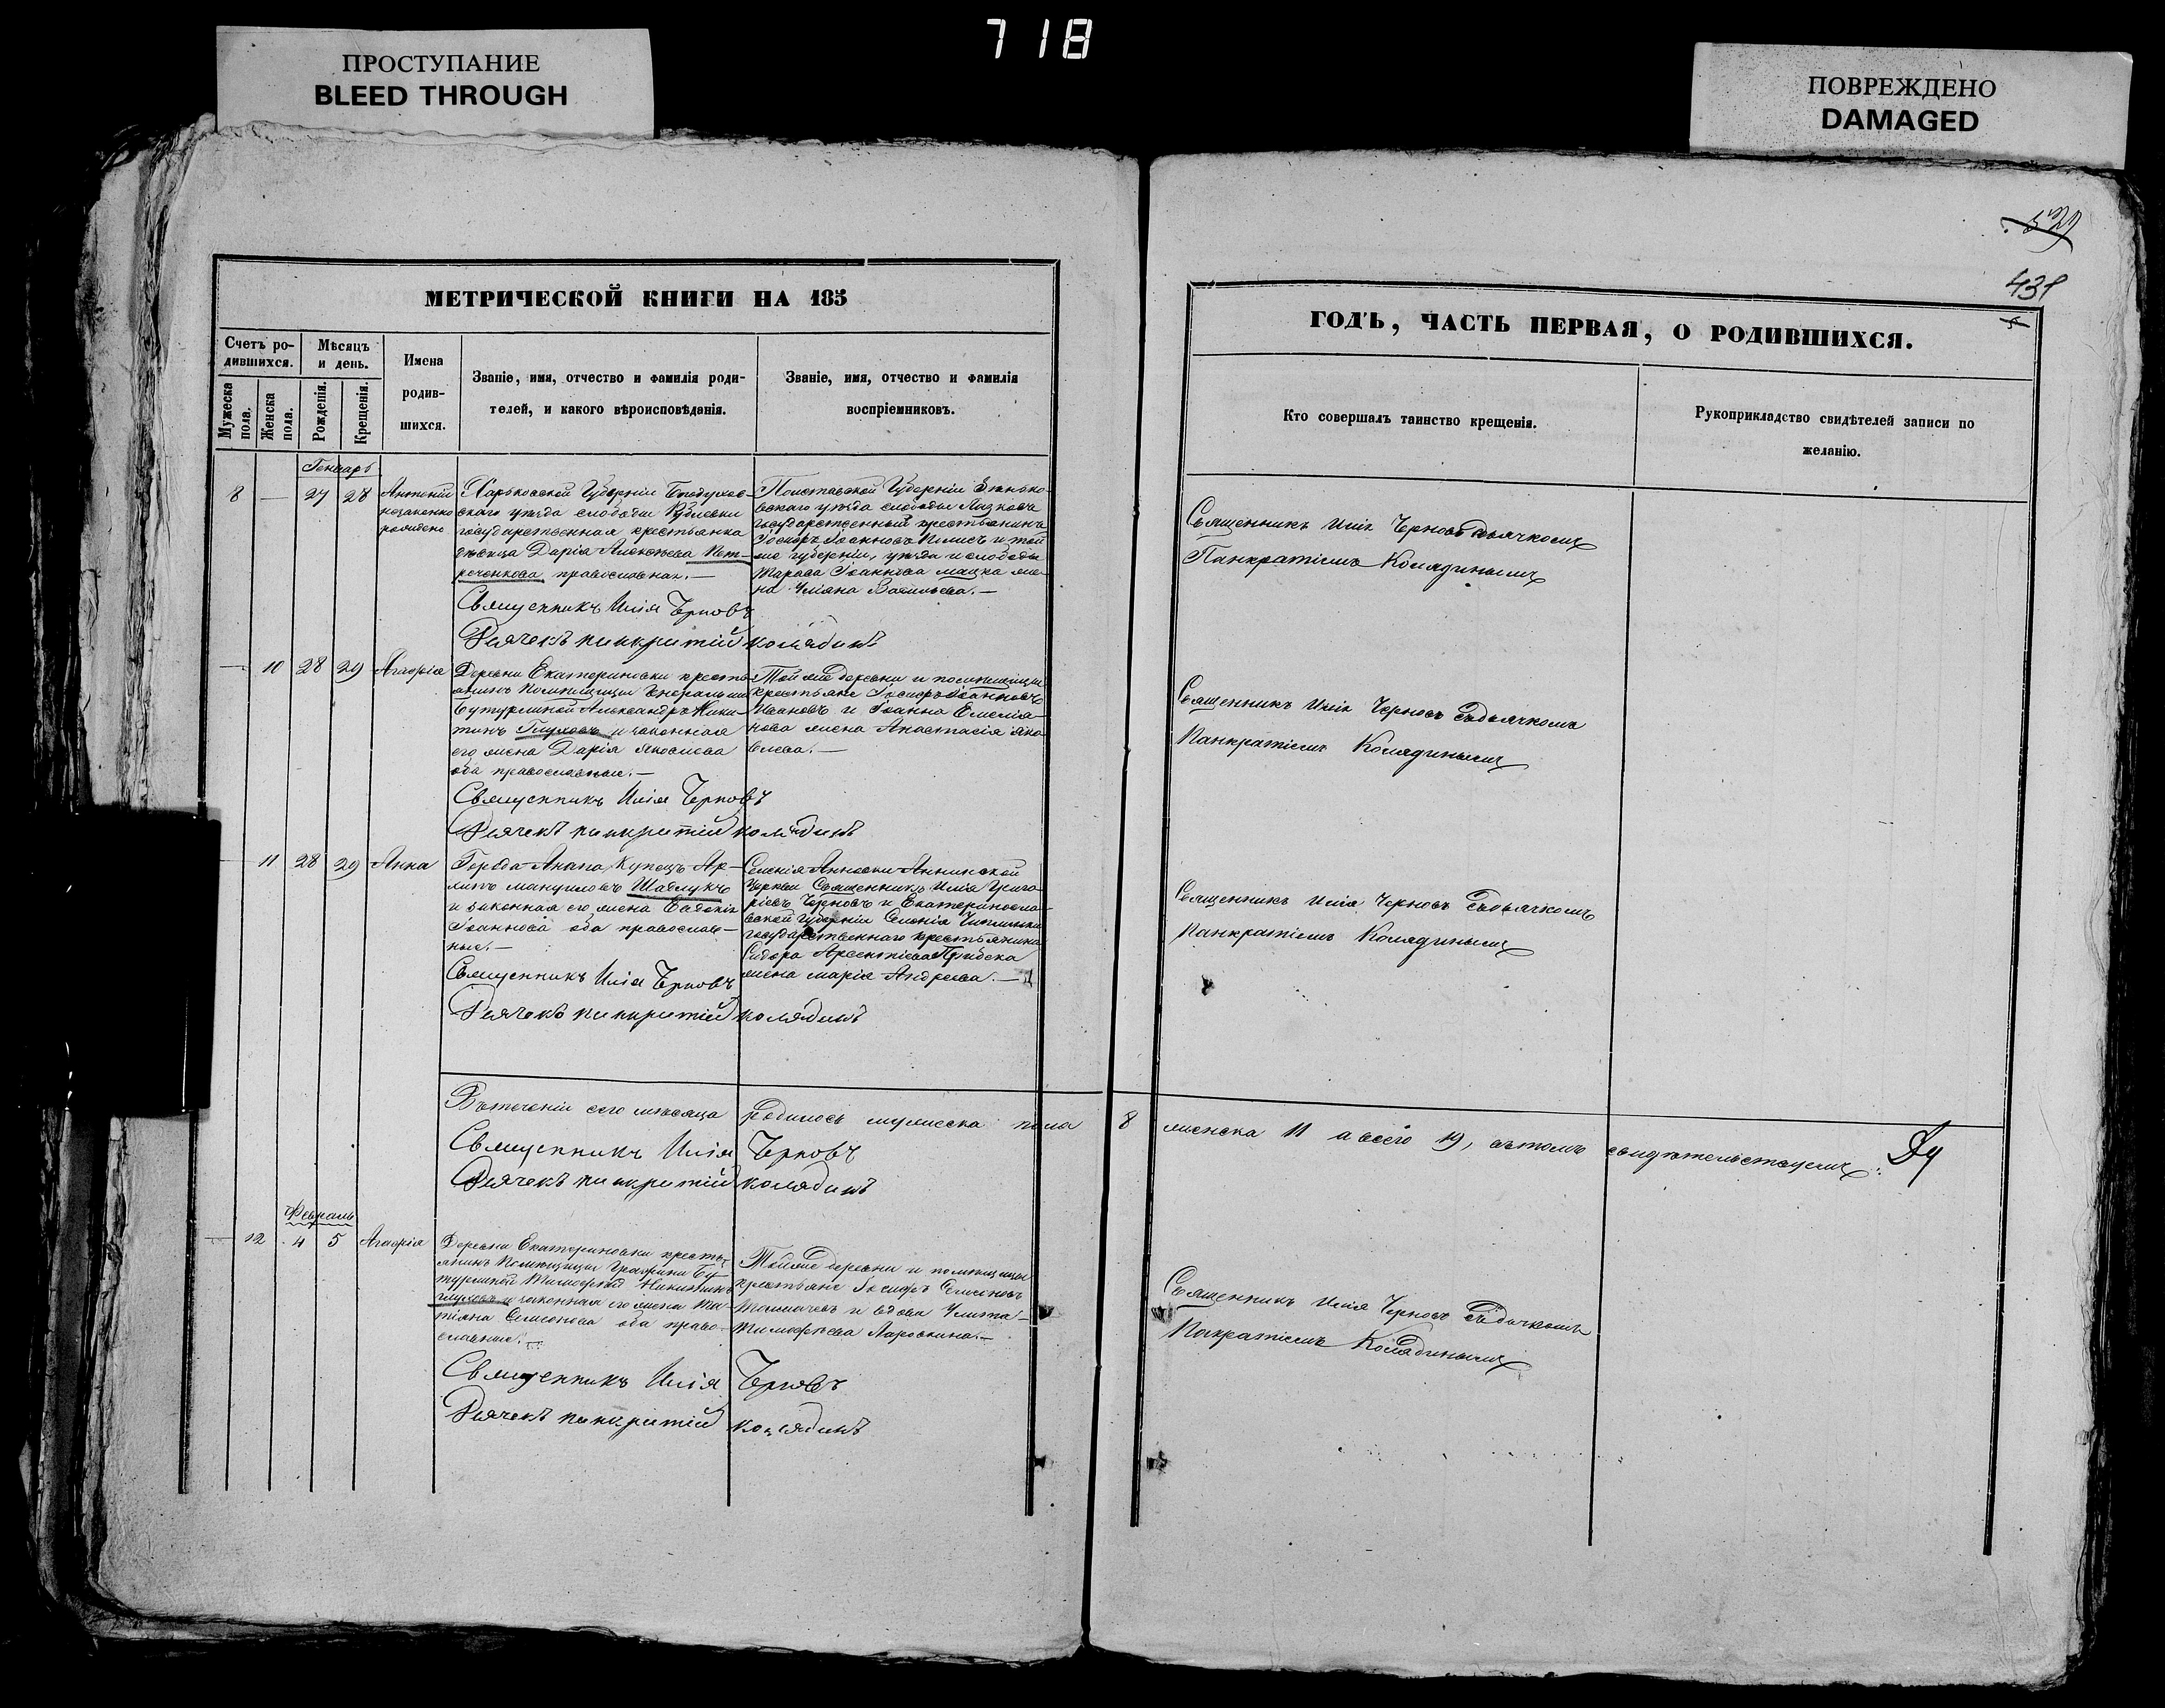 718
ПРОСТУПАНИЕ
BLEED THROUGH
ПОВРЕЖДЕНО
DAMAGED
431
МЕТРИЧЕСКОЙ КНИГИ НА 185
Счетъ родившихся.
Мѣсяцъ и день.
Мужеска пола.
Женска пола.
Рожденія.
Крещенія.
Имена
родив-
шихся.
Званіе, имя, отчество и фамилія роди-
телей, и какого вѣроисповѣданія.
Званіе, имя, отчество и фамилія
воспріемниковъ.
ГОДЪ, ЧАСТЬ ПЕРВАЯ, О РОДИВШИХСЯ.
Кто совершалъ таинство крещенія.
Рукоприкладство свидѣтелей записи по
желанію.
Генварь
8 — 27 28 Антоній
незаконно
рожденъ
Харьковской Губерніи Богодухов-
скаго уѣзда слободы
государственная крестьянка
дѣвица Дарія Алексѣева Пет-
реченкова православная.—
Священникъ Илія Черновъ
Дьячекъ Панкратій Колядинъ
Полтавской Губерніи Зѣнько-
вскаго уѣзда слободы
государственный крестьянинъ
Іосифъ Іоанновъ и той
же губерніи, уѣзда и слободы
Іоаннова жена
Васильева.—
Священникъ Илія Черновъ съ дьячкомъ
Панкратіемъ Колядинымъ
— 10 28 29 Агафія
Деревни Екатериновки кресть-
янинъ Помѣщицы Генеральши
Бутурлиной Александръ Ники-
тинъ Глуховъ и законная
его жена Дарія Яковлева
оба православные.—
Священникъ Илія Черновъ
Дьячекъ Панкратій Колядинъ
Той же деревни и помѣщицы
крестьяне Іосифъ Іоанновъ
Ивановъ и Іоанна Емелья-
нова жена Анастасія Яко-
влева.—
Священникъ Илія Черновъ съ дьячкомъ
Панкратіемъ Колядинымъ
— 11 28 29 Анна
Города Анапа Купецъ
Мануиловъ
и законная его жена Евдокія
Іоаннова оба православ-
ные.—
Священникъ Илія Черновъ
Дьячекъ Панкратій Колядинъ
Селенія Анновки Аннинской
Церкви Священникъ Илія Григо-
ріевъ Черновъ и Екатеринослав-
вской Губерніи Селенія
государственнаго крестьянина
Сидора Арсентіева
жена Марія Андреева.—
Священникъ Илія Черновъ съ дьячкомъ
Панкратіемъ Колядинымъ
Въ теченіи сего мѣсяца родилось мужеска пола 8 женска 11 а всего 19, въ томъ свидѣтельствуемъ:
Священникъ Илія Черновъ
Дьячекъ Панкратій Колядинъ
Февраль
— 12 4 5 Агафія
Деревни Екатериновки кресть-
янинъ Помѣщицы Графини Бу-
турлиной Тимофей Никитинъ
Глуховъ и законная его жена Та-
тіяна Семенова оба право-
славные.
Священникъ Илія Черновъ
Дьячекъ Панкратій Колядинъ
Той же деревни и помѣщицы
крестьяне Іосифъ Семеновъ
Толмачевъ и вдова Улита
Тимофеева
Священникъ Илія Черновъ съ дьячкомъ
Пакратіемъ Колядинымъ